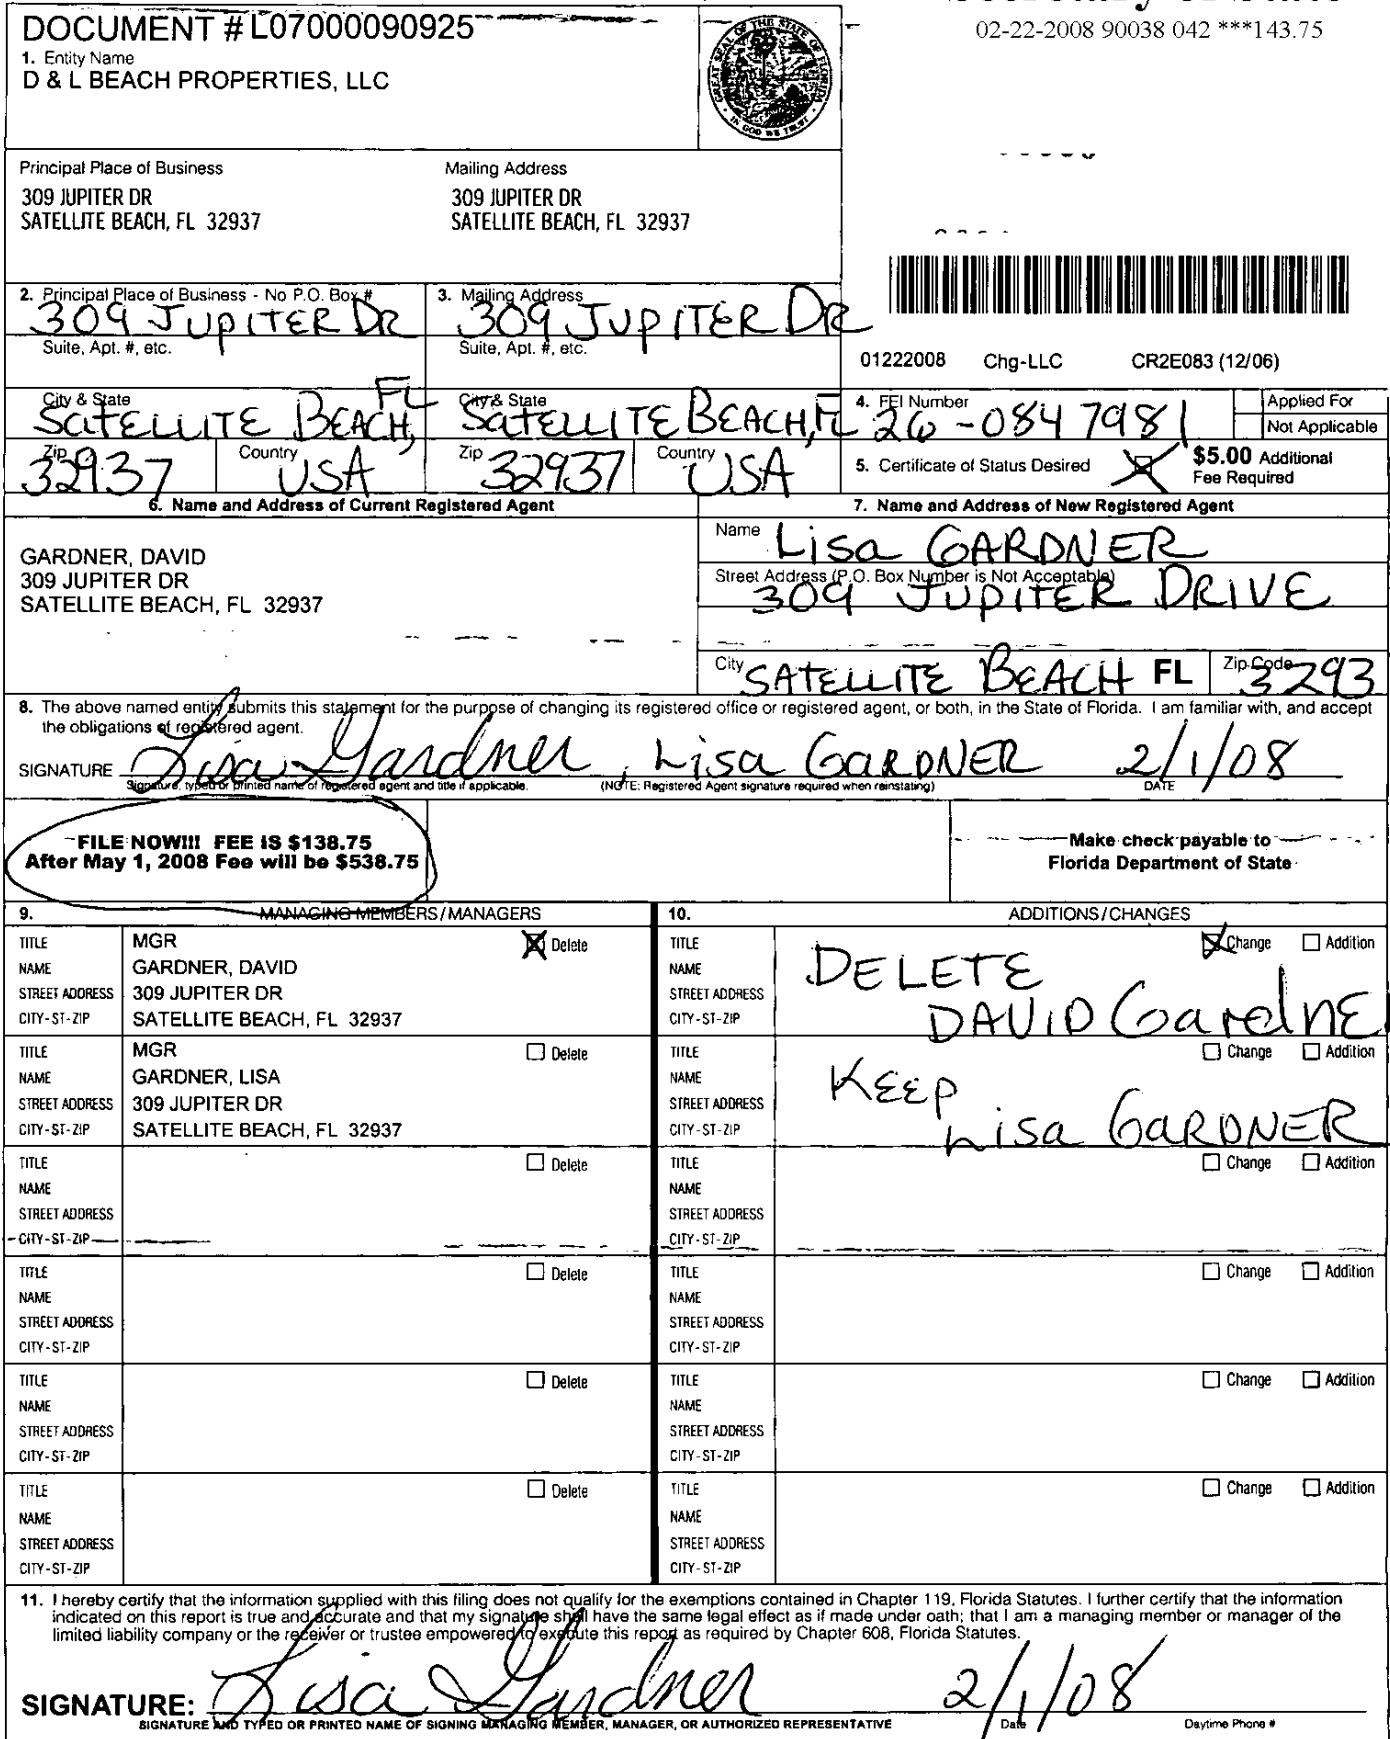 DOCUMENT # L07000090925
1. Entity Name
D & L BEACH PROPERTIES, LLC
GREAT SEAL OF THE STATE OF FLORIDA
IN GOD WE TRUST
02-22-2008 90038 042 ***143.75
Principal Place of Business
309 JUPITER DR
SATELLITE BEACH, FL 32937
Mailing Address
309 JUPITER DR
SATELLITE BEACH, FL 32937
2. Principal Place of Business - No P.O. Box #
309 JUPITER DR
3. Mailing Address
309 JUPITER DR
Suite, Apt. #, etc.
Suite, Apt. #, etc.
01222008 Chg-LLC CR2E083 (12/06)
City & State
SATELLITE BEACH, FL
City & State
SATELLITE BEACH, FL
4. FEI Number
26-0847981
Applied For
Not Applicable
Zip
32937
Country
USA
Zip
32937
Country
USA
5. Certificate of Status Desired
$5.00 Additional
Fee Required
6. Name and Address of Current Registered Agent
GARDNER, DAVID
309 JUPITER DR
SATELLITE BEACH, FL 32937
7. Name and Address of New Registered Agent
Name Lisa GARDNER
Street Address (P.O. Box Number is Not Acceptable)
309 JUPITER DRIVE
City SATELLITE BEACH FL Zip Code 3293
8. The above named entity submits this statement for the purpose of changing its registered office or registered agent, or both, in the State of Florida. I am familiar with, and accept
the obligations of registered agent.
SIGNATURE Lisa Gardner, Lisa GARDNER 2/1/08
Signature, typed or printed name of registered agent and title if applicable. (NOTE: Registered Agent signature required when reinstating) DATE
FILE NOW!!! FEE IS $138.75
After May 1, 2008 Fee will be $538.75
Make check payable to
Florida Department of State
9. MANAGING MEMBERS/MANAGERS
TITLE MGR Delete
NAME GARDNER, DAVID
STREET ADDRESS 309 JUPITER DR
CITY-ST-ZIP SATELLITE BEACH, FL 32937
TITLE MGR Delete
NAME GARDNER, LISA
STREET ADDRESS 309 JUPITER DR
CITY-ST-ZIP SATELLITE BEACH, FL 32937
TITLE Delete
NAME
STREET ADDRESS
CITY-ST-ZIP
TITLE Delete
NAME
STREET ADDRESS
CITY-ST-ZIP
TITLE Delete
NAME
STREET ADDRESS
CITY-ST-ZIP
TITLE Delete
NAME
STREET ADDRESS
CITY-ST-ZIP
10. ADDITIONS/CHANGES
TITLE Change Addition
NAME DELETE
STREET ADDRESS
CITY-ST-ZIP DAVID GardNE
TITLE Change Addition
NAME KEEP
STREET ADDRESS
CITY-ST-ZIP Lisa GARDNER
TITLE Change Addition
NAME
STREET ADDRESS
CITY-ST-ZIP
TITLE Change Addition
NAME
STREET ADDRESS
CITY-ST-ZIP
TITLE Change Addition
NAME
STREET ADDRESS
CITY-ST-ZIP
TITLE Change Addition
NAME
STREET ADDRESS
CITY-ST-ZIP
11. I hereby certify that the information supplied with this filing does not qualify for the exemptions contained in Chapter 119, Florida Statutes. I further certify that the information
indicated on this report is true and accurate and that my signature shall have the same legal effect as if made under oath; that I am a managing member or manager of the
limited liability company or the receiver or trustee empowered to execute this report as required by Chapter 608, Florida Statutes.
SIGNATURE: Lisa Gardner 2/1/08
SIGNATURE AND TYPED OR PRINTED NAME OF SIGNING MANAGING MEMBER, MANAGER, OR AUTHORIZED REPRESENTATIVE Date Daytime Phone #